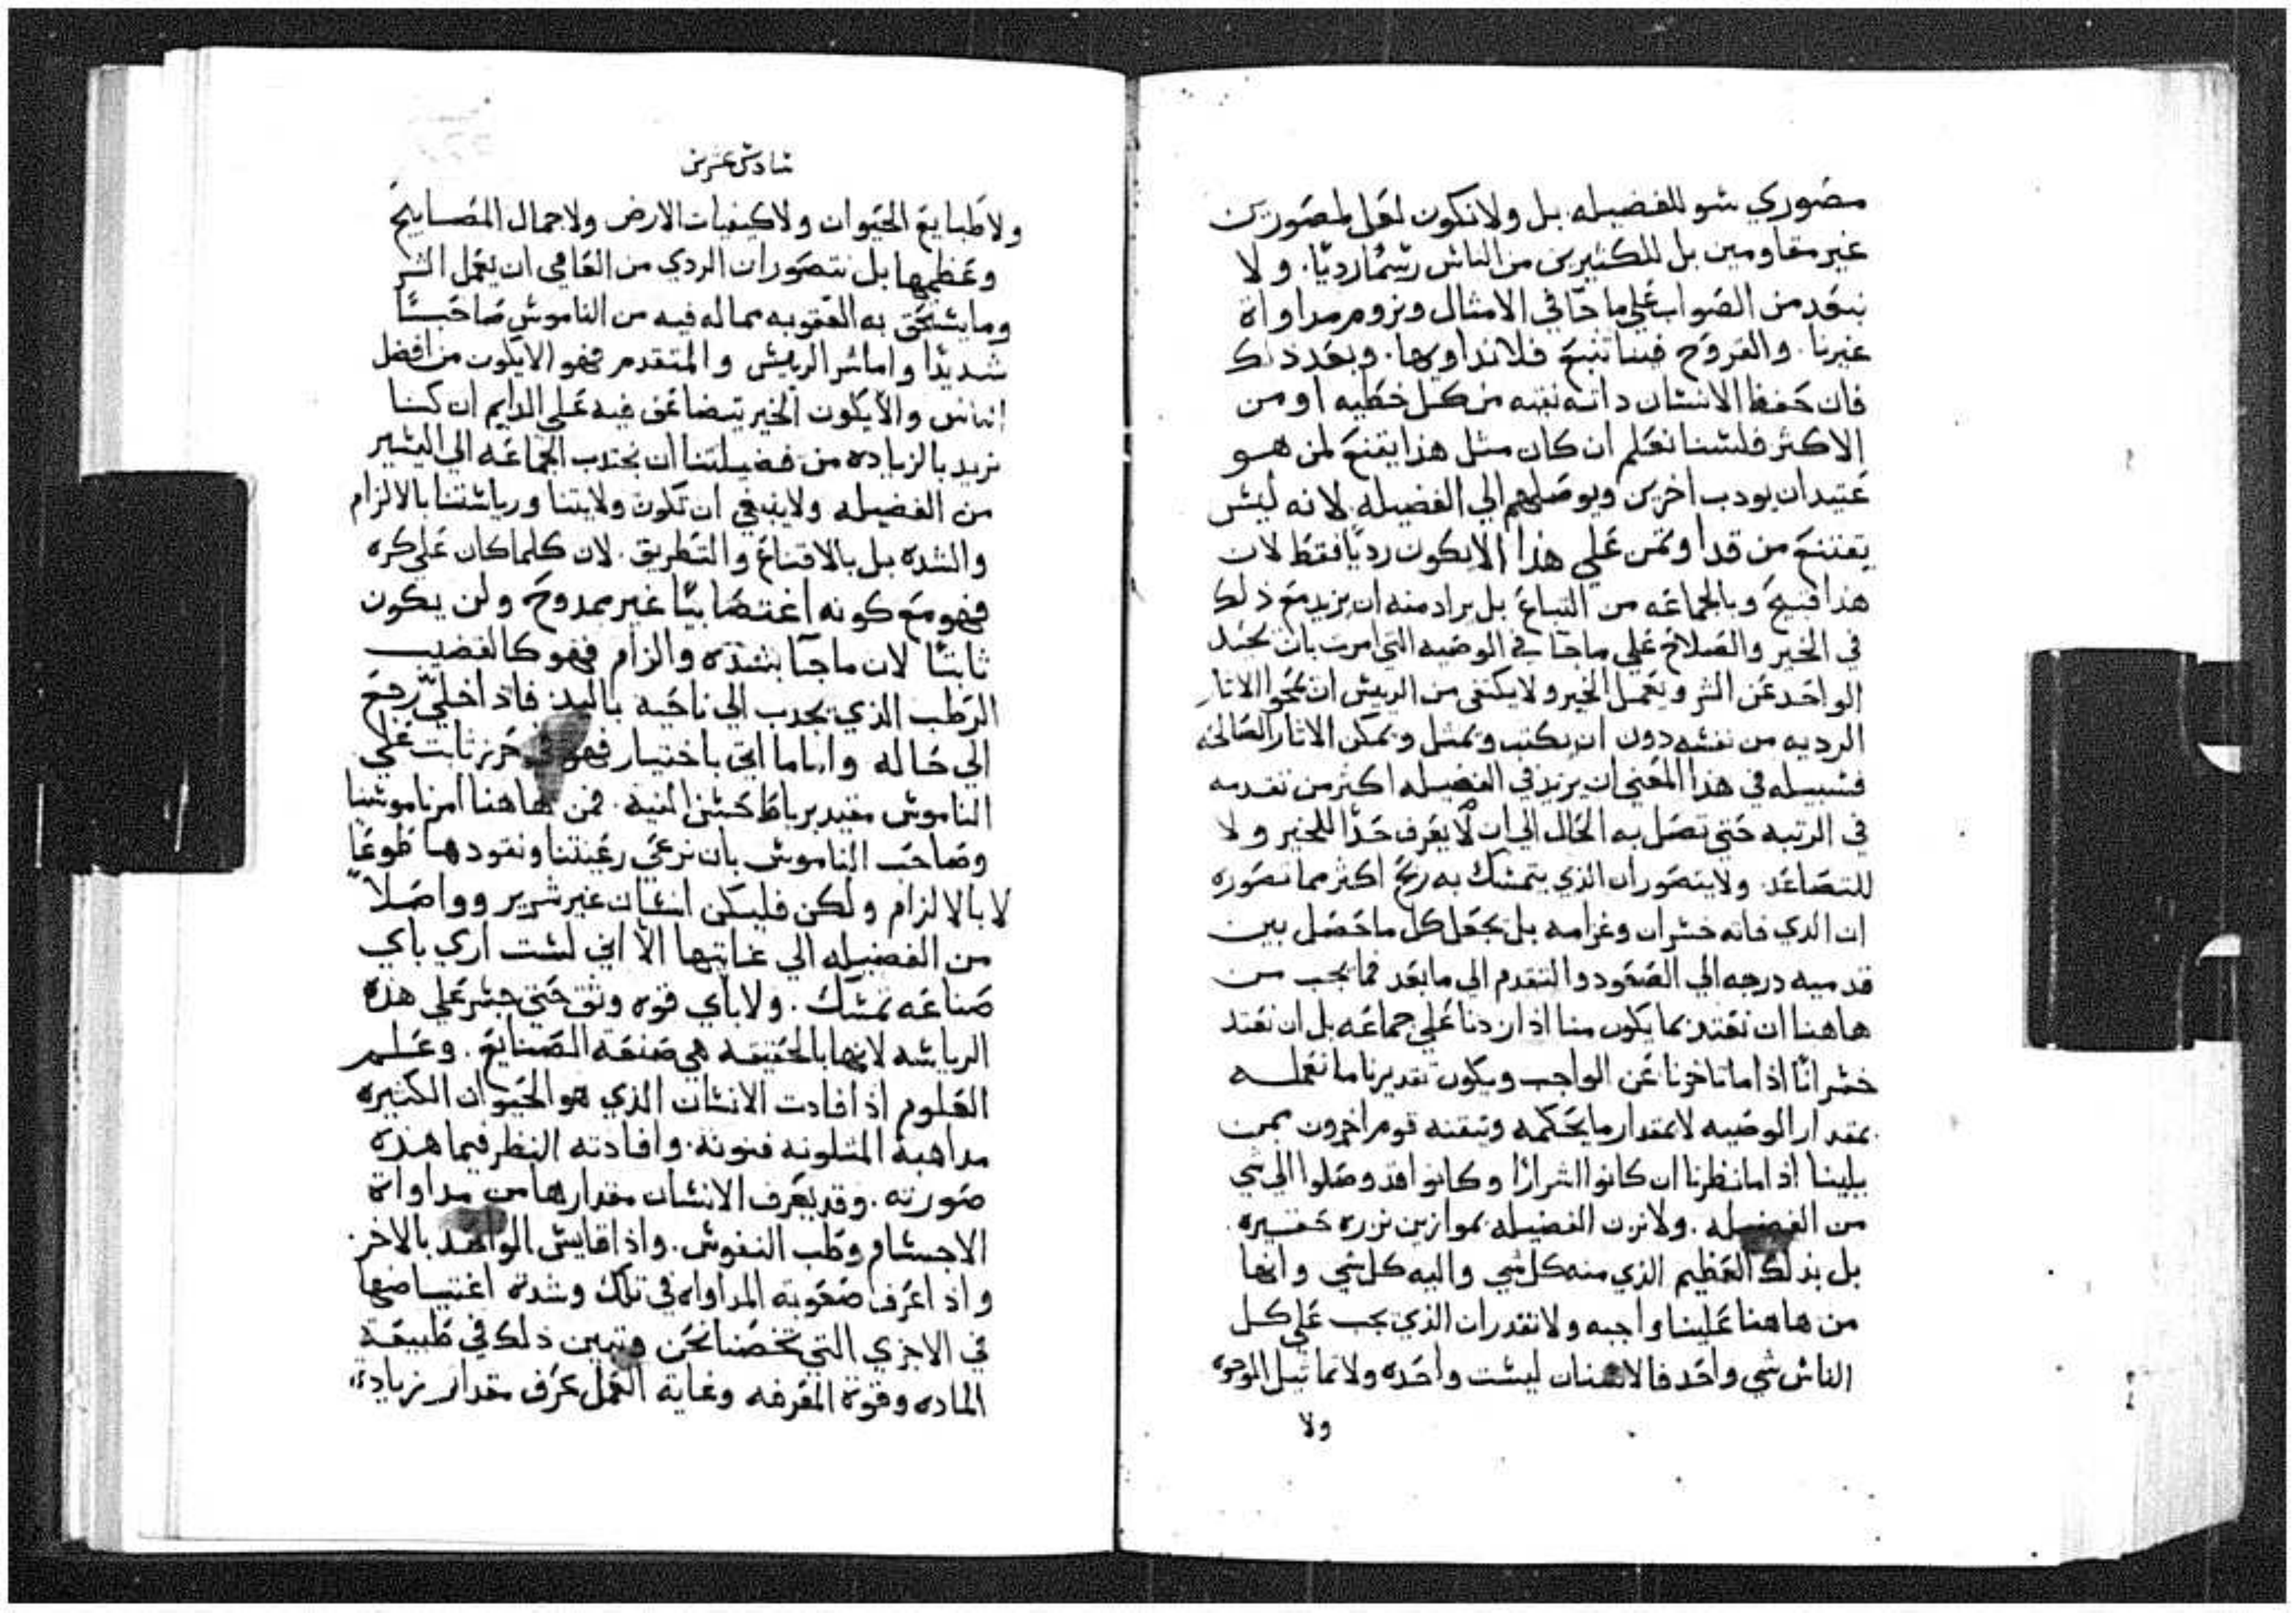 مصوري سو للفضيله بل ولا نكون لعل لمصورين
غير مقاومين بل للكثيرين من الناس رسمًا رديًا. ولا
نبعد من الصواب علي ما جا في الامثال ونروم مداواة
غيرنا. والقروح فينا تنبع فلا نداويها. وبعد ذلك
فان حفظ الانسان داته نقيه من كل خطيه او من
الاكثر فلسنا نعلم ان كان مثل هذا يقنع لمن هو
عتيد ان يودب اخرين ويوصلهم الي الفضيله لانه ليس
يقتنع من قد اوتمن علي هذا الا يكون رديًا فقط لان
هذا قبيح وبالجماعه من التباع بل يراد منه ان يزيد مع ذلك
في الخير والصلاح علي ما جا في الوصيه التي امرت بان يحيد
الواحد عن الشر ويعمل الخير ولا يكتفي من الرييس ان يمحوا الاثار
الرديه من نفسه دون ان يكتب ويمثل ويمكن الاثار الصالحه
فسبيله في هذا المعني ان يزيد في الفضيله اكثر من تقدمه
في الرتبه حتي تصل به الحال الي ان لا يعرف حدًا للخير ولا
للتصاعد ولا يتصور ان الذي يتمسك به ربح اكثر مما تصوره
ان الدي فاته خسران وغرامه بل يجعل كل ما حصل بين
قدميه درجه الي الصعود والتقدم الي ما بعد فما يجب من
هاهنا ان نعتد بما يكون منا اذا زدنا علي جماعه بل ان نعتد
خسرانًا اذا ما تاخرنا عن الواجب ويكون تقديرنا ما نعمله
بمقدار الوصيه لا بمقدار ما يحكمه ويتقنه قوم اخرون بمن
يلينا اذا ما نظرنا ان كانوا اشرارًا وكانوا قد وصلوا الي شي
من الفضيله. ولا نزن الفضيله بموازين نزره حقيره.
بل بذلك العظيم الذي منه كل شي واليه كل شي وانها
من هاهنا علينا واجبه ولا نقدر ان الذي يجب علي كل
الناس شي واحد فالاسنان ليست واحده ولا تماثيل الوجوه
ولا
سادس عشرين
ولا طبايع الحيوان ولا كيفيات الارض ولا جمال المصابيح
وعظمها بل نتصور ان الردي من العامي ان يعمل الشر
وما يستحق به العقوبه مما له فيه من الناموس صاحبًا
شديدًا واما شر الرييس والمتقدم فهو الا يكون من افضل
الناس والا يكون الخير يتضاعف فيه علي الدايم ان كنا
نريد بالزياده من فضيلتنا ان نجتدب الجماعه الي اليسير
من الفضيله ولا ينبغي ان تكون ولايتنا ورياستنا بالالزام
والشده بل بالاقناع والتطريق. لان كلما كان علي كره
فهو مع كونه اغتصابيًا غير ممدوح ولن يكون
ثابتًا لان ما جا بشده والزام فهو كالقضيب
الرطب الذي يجدب الي ناحيه باليد فاذا خلي رجع
الي حاله واما ما اتي باختيار فهو حرز ثابت علي
الناموس مقيد برباط حسن النيه. فمن هاهنا امر ناموسنا
وصاحب الناموس بان نرعي رعيتنا ونقودها طوعًا
لا بالالزام ولكن فليكن انسان غير شرير وواصلًا
من الفضيله الي غايتها الا اني لست اري باي
صناعه تمسك. ولا باي قوه وثق حتي جسر علي هذه
الرياسه لانها بالحقيقه هي صنعة الصنايع. وعلم
العلوم اذا فادت الانسان الذي هو الحيوان الكثيره
مداهبة المتلونه فنونه. وافادته النظر فيما هذه
صورته. وقد يعرف الانسان مقدارها من مداواة
الاجسام وطب النفوس. واذا قايس الواحد بالاخر.
واذا عرف صعوبة المداواه في تلك وشدة اعتياصها
في الاجزي التي تخصنا نحن وتبين ذلك في طبيعة
الماده وقوة المعرفه وغاية العمل عرف مقدار زيادة